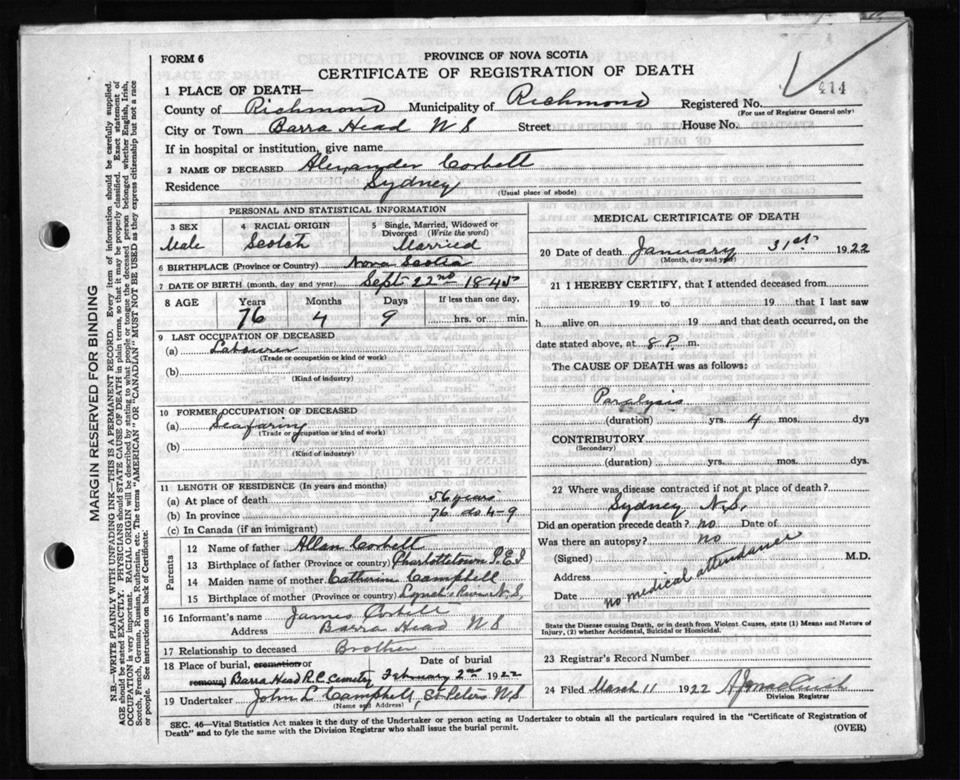 FORM 6
PROVINCE OF NOVA SCOTIA
CERTIFICATE OF REGISTRATION OF DEATH
414
1 PLACE OF DEATH—
County of Richmond Municipality of Richmond Registered No.
(For use of Registrar General only)
City or Town Barra Head N S Street House No.
If in hospital or institution, give name
2 NAME OF DECEASED Alexander Corbett
Residence Sydney
(Usual place of abode)
PERSONAL AND STATISTICAL INFORMATION
3 SEX 4 RACIAL ORIGIN 5 Single, Married, Widowed or Divorced (Write the word)
Male Scotch Married
6 BIRTHPLACE (Province or Country) Nova Scotia
7 DATE OF BIRTH (month, day and year) Sept 22nd 1845
8 AGE Years Months Days If less than one day,
76 4 9 hrs. or min.
9 LAST OCCUPATION OF DECEASED
(a) Labourer
(Trade or occupation or kind of work)
(b)
(Kind of industry)
10 FORMER OCCUPATION OF DECEASED
(a) Seafaring
(Trade or occupation or kind of work)
(b)
(Kind of industry)
11 LENGTH OF RESIDENCE (In years and months)
(a) At place of death 56 years
(b) In province 76 do 4-9
(c) In Canada (if an immigrant)
Parents
12 Name of father Allan Corbett
13 Birthplace of father (Province or country) Charlottetown P.E.I
14 Maiden name of mother Catherine Campbell
15 Birthplace of mother (Province or country) Lynch's River N.S.
16 Informant's name James Corbett
Address Barra Head N S
17 Relationship to deceased Brother
18 Place of burial, cremation or removal Barra Head R.C. Cemetry
Date of burial February 2nd 1922
19 Undertaker John L Campbell, St Peters N S
(Name and Address)
MEDICAL CERTIFICATE OF DEATH
20 Date of death January 31st 1922
(Month, day and year)
21 I HEREBY CERTIFY, that I attended deceased from
19 to 19 that I last saw
h alive on 19 and that death occurred, on the
date stated above, at 8 P. m.
The CAUSE OF DEATH was as follows:
Paralysis
(duration) yrs. 4 mos. dys
CONTRIBUTORY
(Secondary)
(duration) yrs. mos. dys.
22 Where was disease contracted if not at place of death?
Sydney N.S.
Did an operation precede death? no Date of
Was there an autopsy? no
(Signed) M.D.
Address
Date
no medical attendance
State the Disease causing Death, or in death from Violent Causes, state (1) Means and Nature of Injury, (2) whether Accidental, Suicidal or Homicidal.
23 Registrar's Record Number
24 Filed March 11 1922
Division Registrar
SEC. 46—Vital Statistics Act makes it the duty of the Undertaker or person acting as Undertaker to obtain all the particulars required in the "Certificate of Registration of
Death" and to fyle the same with the Division Registrar who shall issue the burial permit.
(OVER)
MARGIN RESERVED FOR BINDING
N.B.—WRITE PLAINLY WITH UNFADING INK—THIS IS A PERMANENT RECORD. Every item of information should be carefully supplied.
AGE should be stated EXACTLY. PHYSICIANS should STATE CAUSE OF DEATH in plain terms, so that it may be properly classified. Exact statement of
OCCUPATION is very important. RACIAL ORIGIN will be described by stating to what people or tongue the deceased person belonged whether English, Irish,
Scotch, French, German, Russian, Ruthenian, etc. The terms "AMERICAN" or "CANADIAN" MUST NOT BE USED as they express citizenship but not a race
or people. See instructions on back of Certificate.